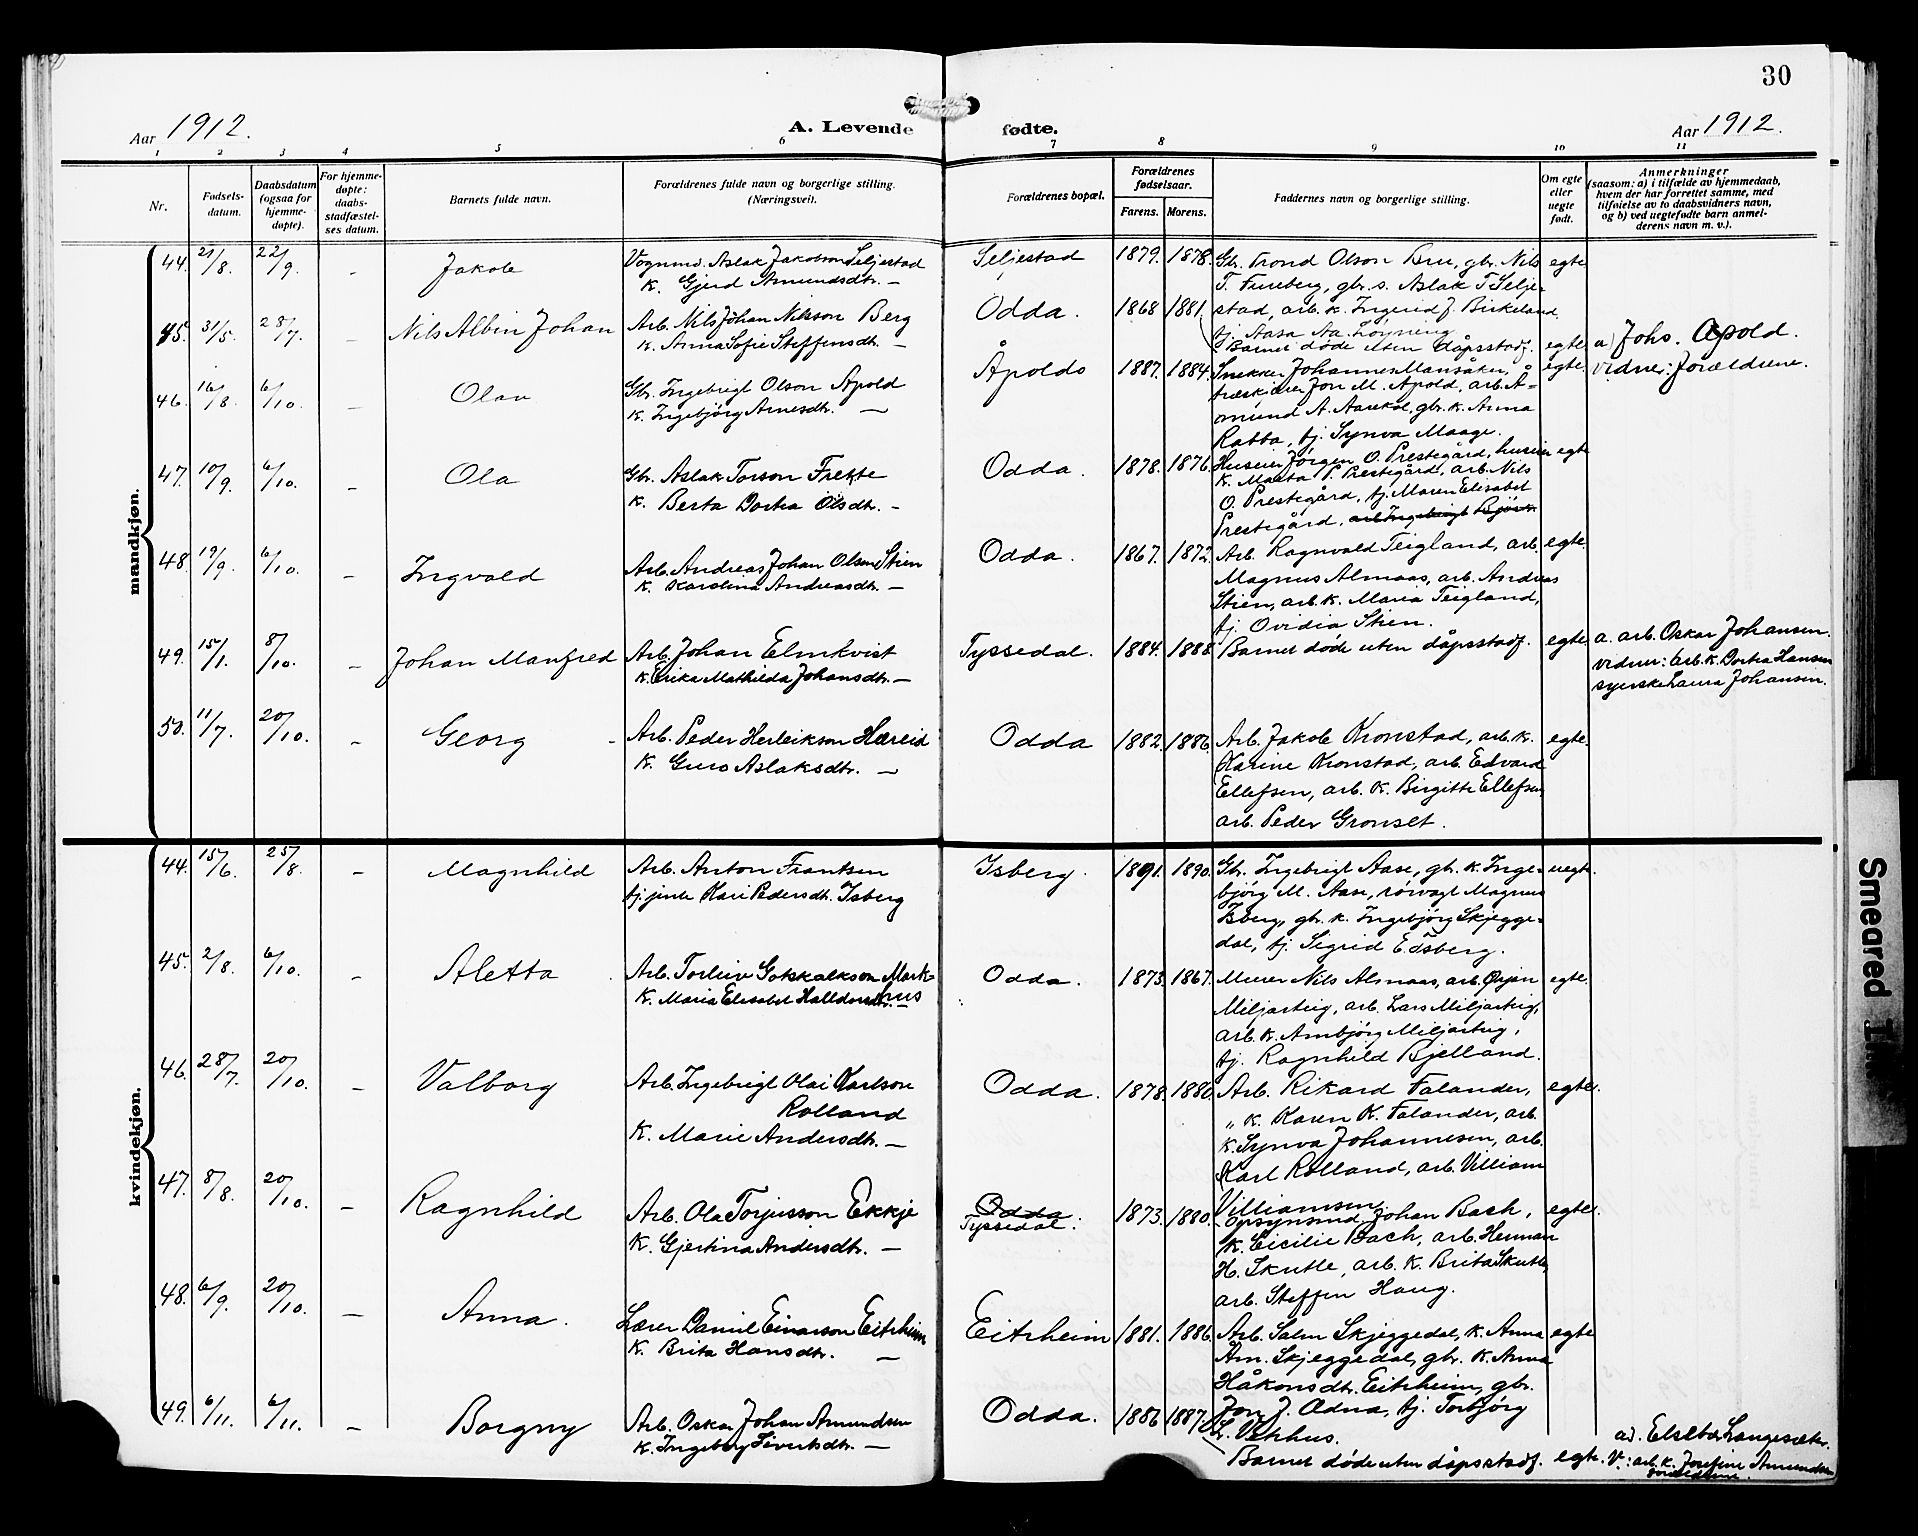 30
Aar 1912.
A. Levende fødte.
Aar 1912.
1 2 3 4 5 6 7 8 9 10 11
Nr.
Fødsels-
datum.
Daabsdatum
(ogsaa for
hjemme-
døpte).
For hjemme-
døpte:
daabs-
stadfæstel-
ses datum.
Barnets fulde navn.
Forældrenes fulde navn og borgerlige stilling.
(Næringsvei).
Forældrenes bopæl.
Forældrenes
fødselsaar.
Farens. Morens.
Faddernes navn og borgerlige stilling.
Om egte
eller
uegte
født.
Anmerkninger
(saasom: a) i tilfælde av hjemmedaab,
hvem der har forrettet samme, med
tilføielse av to daabsvidners navn,
og b) ved uegtefødte barn anmel-
derens navn m. v.).
mandkjøn.
44. 21/8. 22/9. - Jakob
Vognmd. Aslak Jakobson Seljestad
K. Gjerd Amundsdtr. -
Seljestad 1879. 1878.
Gbr. Trond Olson Bru, gbr. Nils
T. Fureberg, gbr. s. Aslak T Selje-
stad, arb. k. Ingerid J. Birkeland
tj. Aasa Aa. Løyning
egte
45. 31/5. 28/7. - Nils Albin Johan
Arb. Nils Johan Nilsson Berg
K. Anna Sofie Steffensdtr. -
Odda. 1868 1881.
Barnet døde uten dåpsstadf. egte
a) Johs. Apold.
vidner: Forældrene.
46. 16/8. 6/10. - Olav
Gbr. Ingebrigt Olson Apold
K. Ingebjörg Arnesdtr. -
Åpoldo 1887. 1884.
Snekker Johannes Mansåker,
træskjærer Jon M. Apold, arb. Å-
mund A. Aarekol, gbr. k. Anna
Rabba, tj. Synva Maage.
egte
47. 10/9. 6/10. - Ola
Gbr. Aslak Torson Frette
K. Berta Dortea Olsdtr. -
Odda. 1878. 1876.
Huseier Jörgen O. Prestegård, huseier
K. Marta P. Prestegård, arb. Nils
O. Prestegård, tj. Maren Elisabet
Prestegård, arb. Ingebrigt Björk
egte
48. 19/9. 6/10. - Ingvald
Arb. Andreas Johan Olsen Stien
K. Karolina Andreasdtr. -
Odda. 1867. 1872.
Arb. Ragnvald Teigland, arb.
Magnus Almaas, arb. Andreas
Stien, arb. k. Maria Teigland,
tj. Ovidia Stien.
egte.
49. 15/1. 8/10. - Johan Manfred
Arb. Johan Elmkvist
K. Erika Mathilda Johansdtr. -
Tyssedal. 1884. 1888.
Barnet døde uten dåpsstadf. egte.
a. arb. Oskar Johansen.
vidner: arb. k. Dortea Hansen
syerske Laura Johansen.
50. 11/7. 20/10. - Georg
Arb. Peder Herleikson Hæreid
K. Guro Aslaksdtr. -
Odda 1882. 1886.
Arb. Jakob Kronstad, arb. k.
Karine Kronstad, arb. Edvard
Ellefsen, arb. K. Birgitte Ellefsen
arb. Peder Gronset.
egte.
kvindekjøn.
44. 15/6. 25/8. - Magnhild
Arb. Anton Frantsen
tj. jente Kari Pedersdtr. Isberg
Isberg. 1891. 1890.
Gbr. Ingebrigt Aase, gbr. k. Inge-
bjørg M. Aase, rörvagt Magnus
Isberg, gbr. k. Ingebjörg Skjegge-
dal, tj. Sigrid Edsberg.
uegte.
45. 2/8. 6/10. - Aletta
Arb. Torleiv Gotskalkson Mark-
hus
K. Maria Elisabet Halldorsdtr. -
Odda. 1873. 1867.
Murer Nils Almaas, arb. Ørjan
Miljarteig, arb. Lars Miljarteig,
arb. k. Ambjörg Miljarteig,
tj. Ragnhild Bjelland.
egte.
46. 28/7. 20/10. - Valborg
Arb. Ingebrigt Olai Karlson
Rolland
K. Marie Andersdtr. -
Odda. 1878. 1880.
Arb. Rikard Falander,
„ K. Karen K. Falander, arb.
K. Synva Johannesen, arb.
Karl Rolland, arb. Villiam
Villiamsen
egte.
47. 8/8. 20/10. - Ragnhild
Arb. Ola Torjusson Ekkje
K. Gjertina Andersdtr. -
Odda
Tyssedal. 1873. 1880.
Opsynsmd. Johan Bach,
K. Cicilie Bach, arb. Herman
H. Skutle, arb. k. Brita Skutle,
arb. Steffen Haug.
egte.
48. 6/9. 20/10. - Anna.
Lærer Daniel Einarson Eitrheim
K. Brita Hansdtr. -
Eitrheim 1881. 1886.
Arb. Salm Skjeggedal, k. Anna
Am. Skjeggedal, gbr. k. Anna
Håkonsdtr. Eitrheim, gbr.
Jon J. Ædna, tj. Torbjørg
L. Vethus.
egte
49. 6/11. 6/11. - Borgny
Arb. Oskar Johan Amundsen
K. Ingeborg Sivertsdtr. -
Odda. 1886 1887.
Barnet døde uten dåpsstadf. egte.
a). Elsebe Langesæter.
V.: arb. k. Josefine Amundsen
forældrene.
Smeared